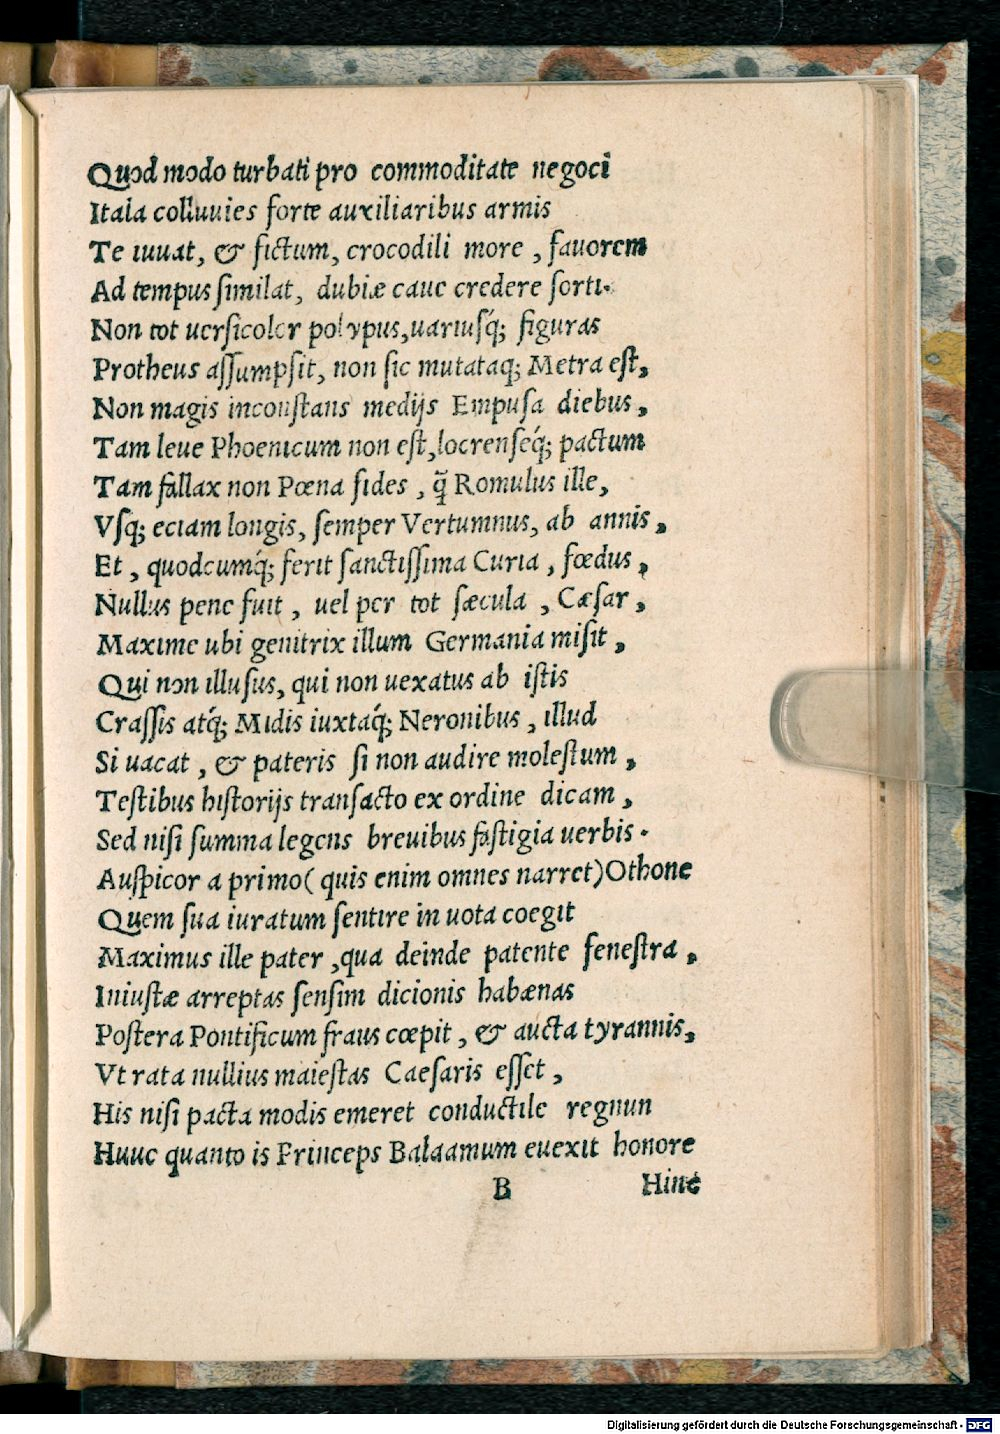 Quod modo turbati pro commoditate negoci
Itala colluuies forte auxiliaribus armis
Te iuuat, & fictum, crocodili more , fauorem
Ad tempus similat, dubiæ caue credere sorti.
Non tot uersicolor polypus, uariusq́; figuras
Protheus assumpsit, non sic mutataq; Metra est,
Non magis inconstans medijs Empusa diebus ,
Tam leue Phoenicum non est, locrenseq́; pactum
Tam fallax non Pœna fides , q̃ Romulus ille,
Vsq; eciam longis, semper Vertumnus, ab annis ,
Et , quodcumq́; ferit sanctissima Curia , fœdus ,
Nullus pene fuit , uel per tot sæcula , Cæsar ,
Maxime ubi genitrix illum Germania misit ,
Qui non illusus, qui non uexatus ab istis
Crassis atq́; Midis iuxtaq́; Neronibus , illud
Si uacat , & pateris si non audire molestum ,
Testibus historijs transacto ex ordine dicam ,
Sed nisi summa legens breuibus fastigia uerbis .
Auspicor a primo ( quis enim omnes narret) Othone
Quem sua iuratum sentire in uota coegit
Maximus ille pater , qua deinde patente fenestra ,
Iniustæ arreptas sensim dicionis habænas
Postera Pontificum fraus cœpit , & aucta tyrannis,
Vt rata nullius maiestas Caesaris esset ,
His nisi pacta modis emeret conductile regnun
Huuc quanto is Princeps Balaamum euexit honore
B Hinc
Digitalisierung gefördert durch die Deutsche Forschungsgemeinschaft - DFG